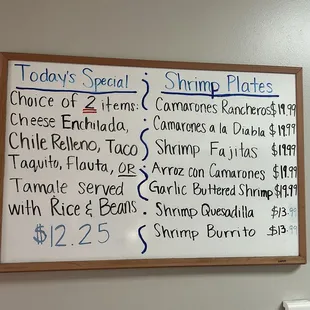 Today's Special
Choice of 2 items:
Cheese Enchilada,
Chile Relleno, Taco
Taquito, Flauta, OR
Tamale served
with Rice & Beans
$12.25
Shrimp Plates
Camarones Rancheros $19.99
Camarones a la Diabla $19.99
Shrimp Fajitas $19.99
Arroz con Camarones $19.99
Garlic Buttered Shrimp $19.99
Shrimp Quesadilla $13.99
Shrimp Burrito $13.99